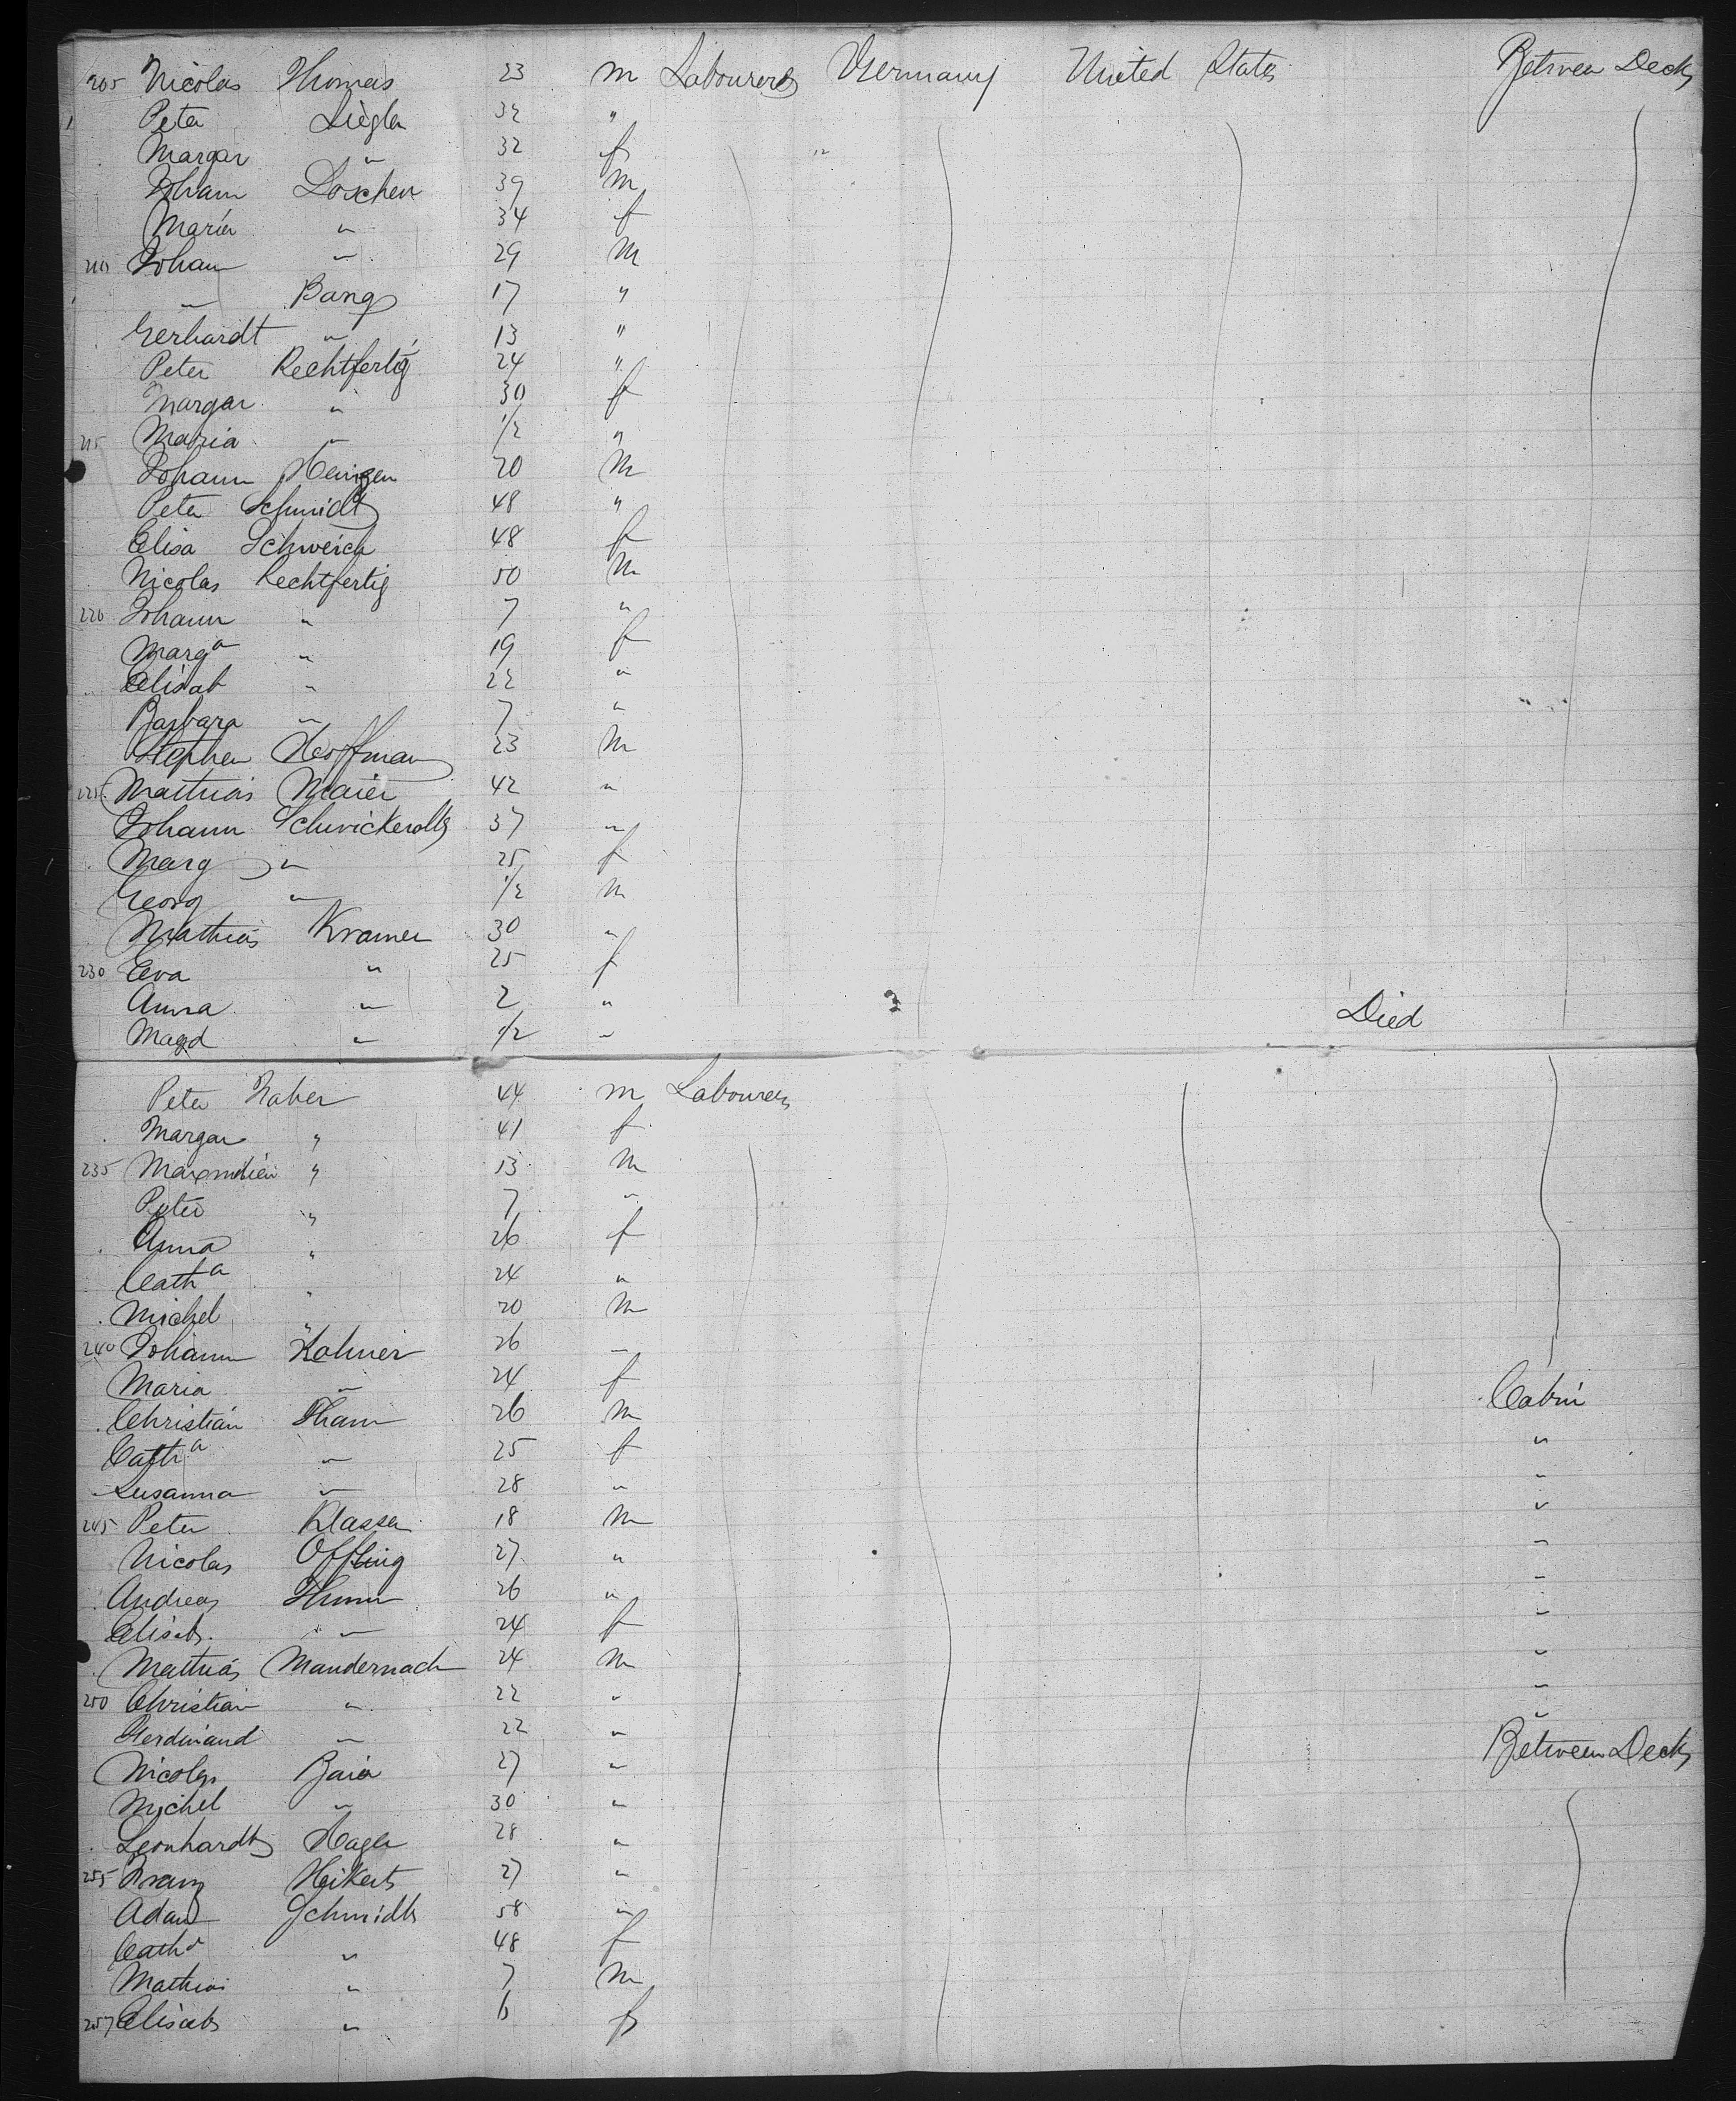 205 Nicolas Thomas 23 m Labourers Germany United States Between Decks
Peter Ziegler 32 "
Margar " 32 f "
Johann Loschen 39 m
Maria " 34 f
210 Johann " 29 m
" Bang 17 "
Gerhardt " 13 "
Peter Rechtfertig 24 "
Margar " 30 f
215 Maria " 1/2 "
Johann Heinzen 20 m
Peter Schmidt 48 "
Elisa Schweich 48 f
Nicolas Rechtfertig 50 m
220 Johann " 7 "
Marga " 19 f
Elisab " 22 "
Barbara " 7 "
Stephen Hoffman 23 m
225 Matthias Maier 42 "
Johann 37 "
Marg " 25 f
Georg " 1/2 m
Mathias Kramer 30 "
230 Eva " 25 f
Anna " 2 "
Magd " 1/2 " Died
Peter 44 m Labourers
Margar " 41 f
235 " 13 m
Peter " 7 "
Anna " 26 f
Catha " 24 "
Michel " 20 m
240 Johann 26 "
Maria " 24 f
Christian 26 m Cabin
Catha " 25 f "
Susanna " 28 " "
245 Peter Klassen 18 m "
Nicolas Offling 27 " "
Andreas Thunn 26 " "
Elisab. " 24 f "
Mathias Mandernach 24 m "
250 Christian " 22 " "
Ferdinand " 22 " "
Nicolas 27 " Between Decks
Michel " 30 "
Leonhardt Hager 28 "
255 Franz Heikert 27 "
Adam Schmidt 58 "
Catha " 48 f
Mathias " 7 m
257 Elisab " 6 f